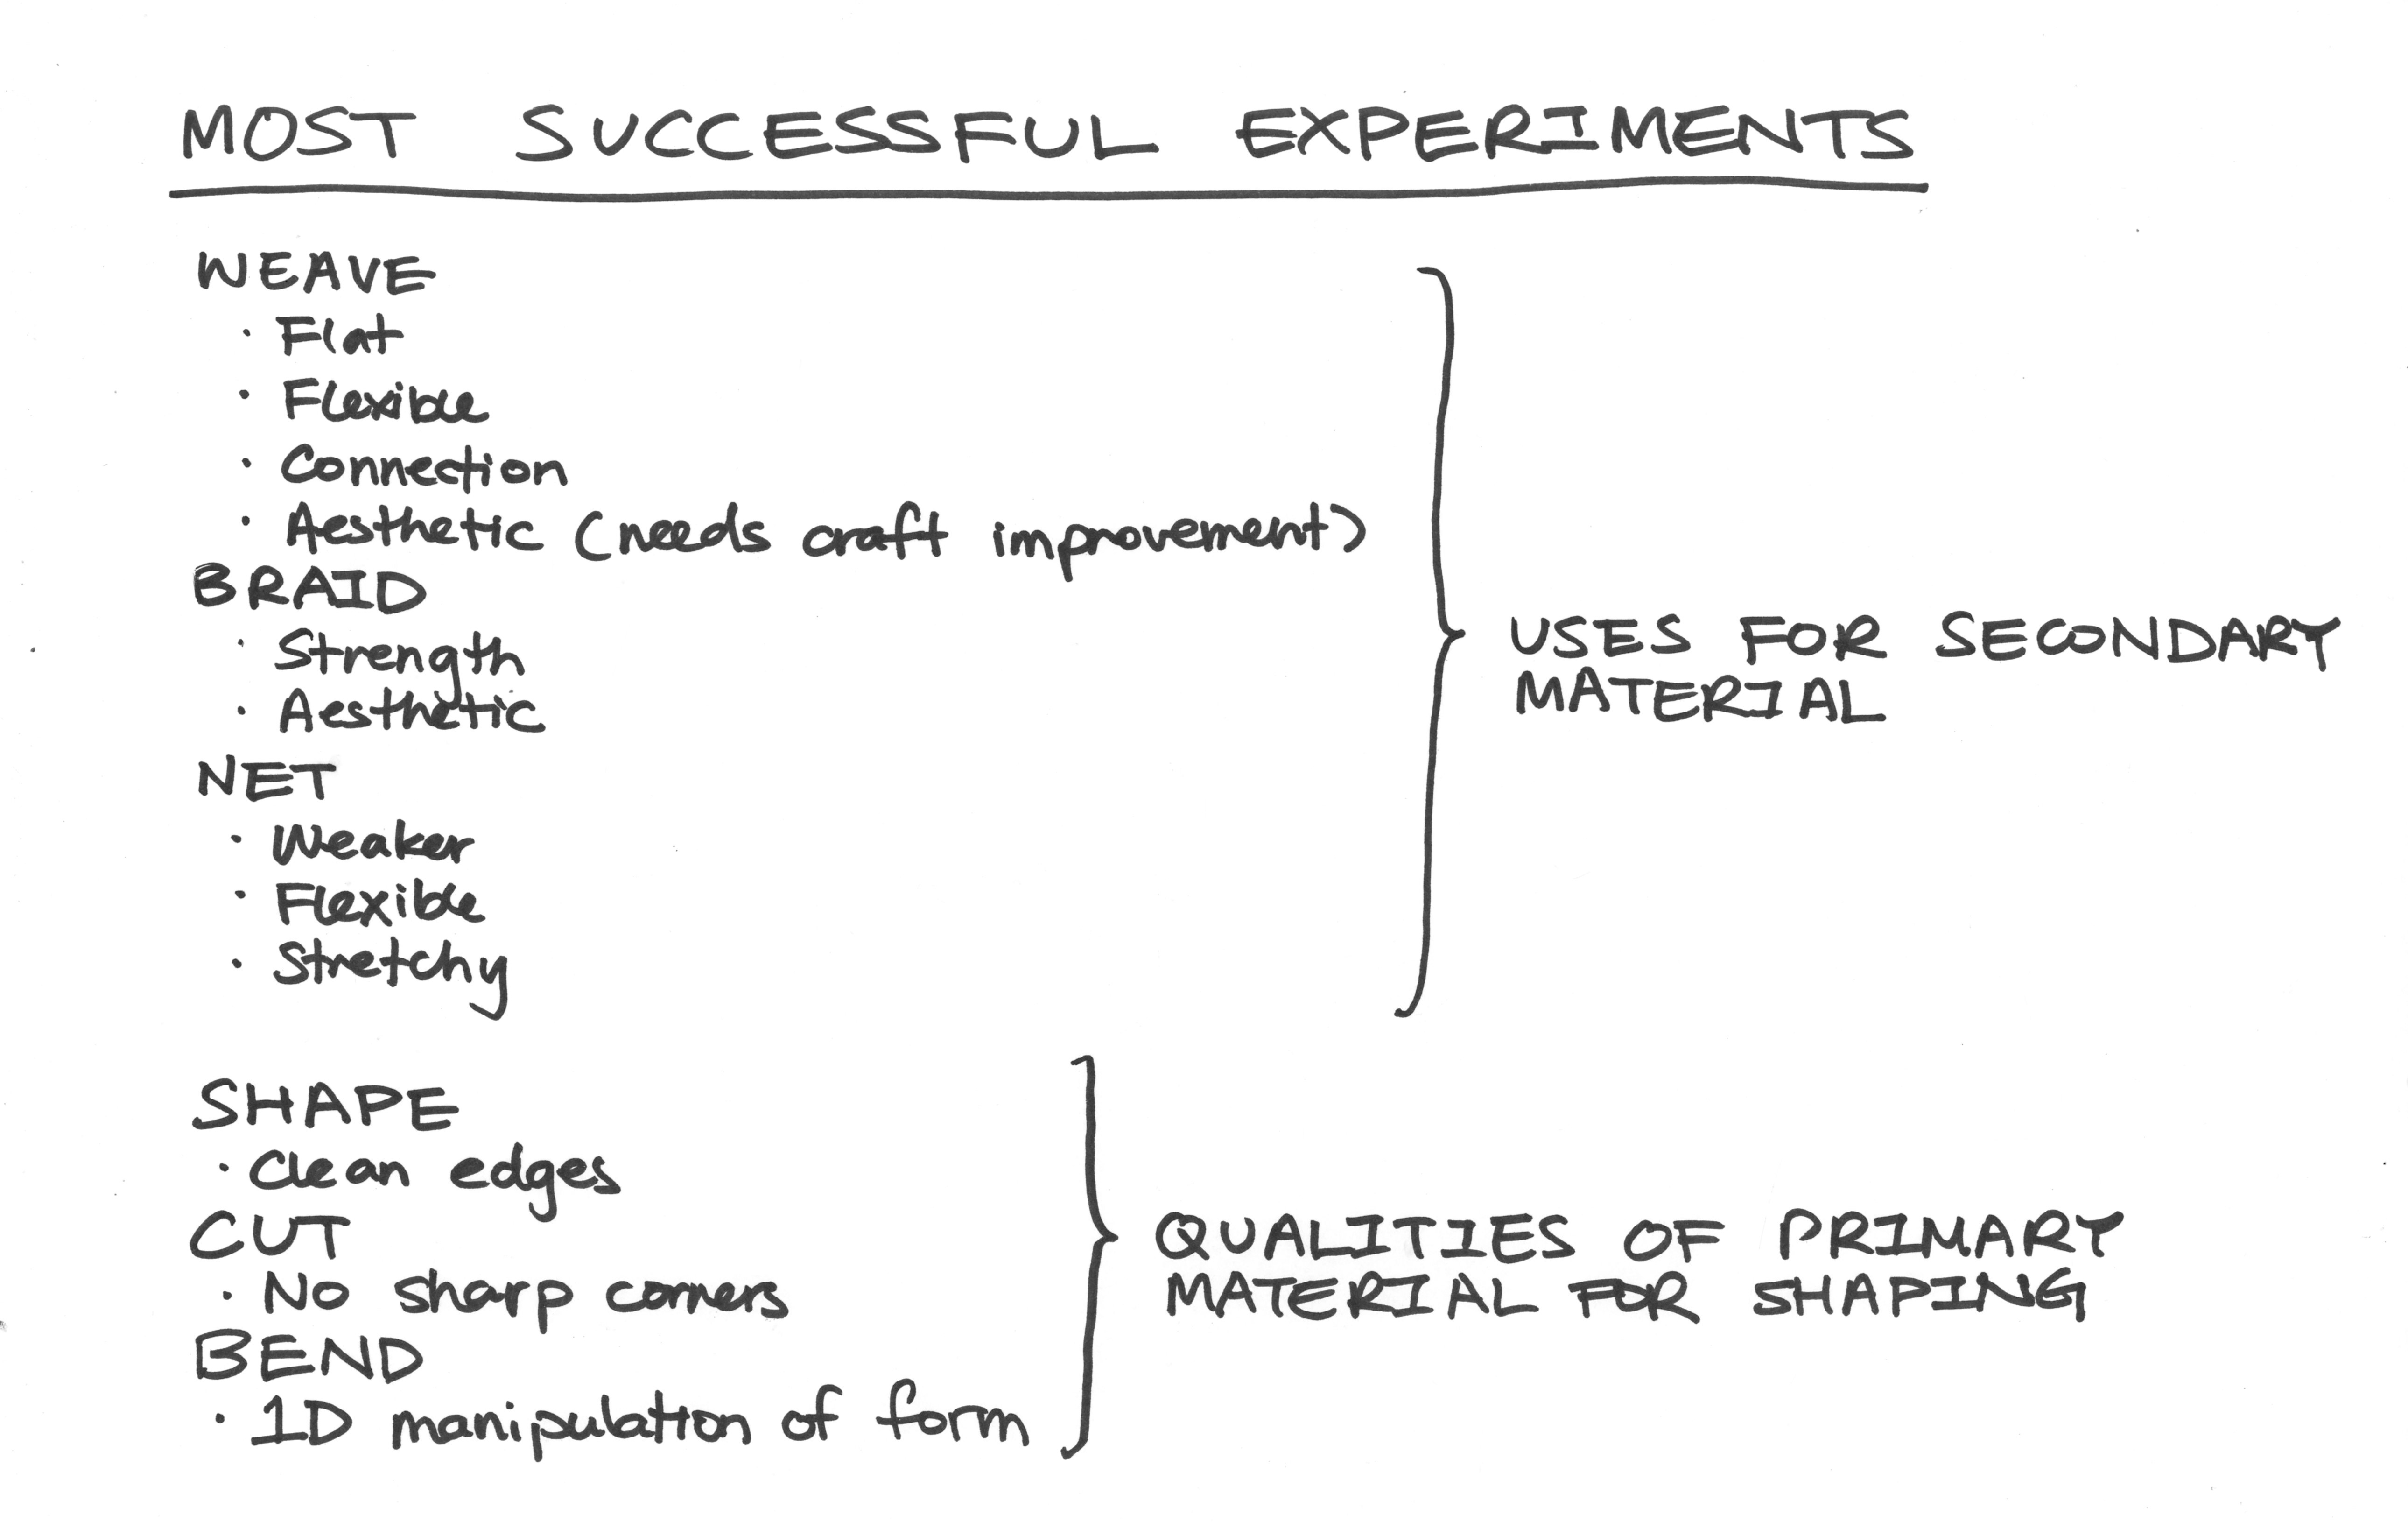 MOST SUCCESSFUL EXPERIMENTS
WEAVE
· Flat
· Flexible
· Connection
· Aesthetic (needs craft improvement)
BRAID
· Strength
· Aesthetic
NET
· Weaker
· Flexible
· Stretchy
USES FOR SECONDARY
MATERIAL
SHAPE
· Clean edges
CUT
· No sharp corners
BEND
· 1D manipulation of form
QUALITIES OF PRIMARY
MATERIAL FOR SHAPING